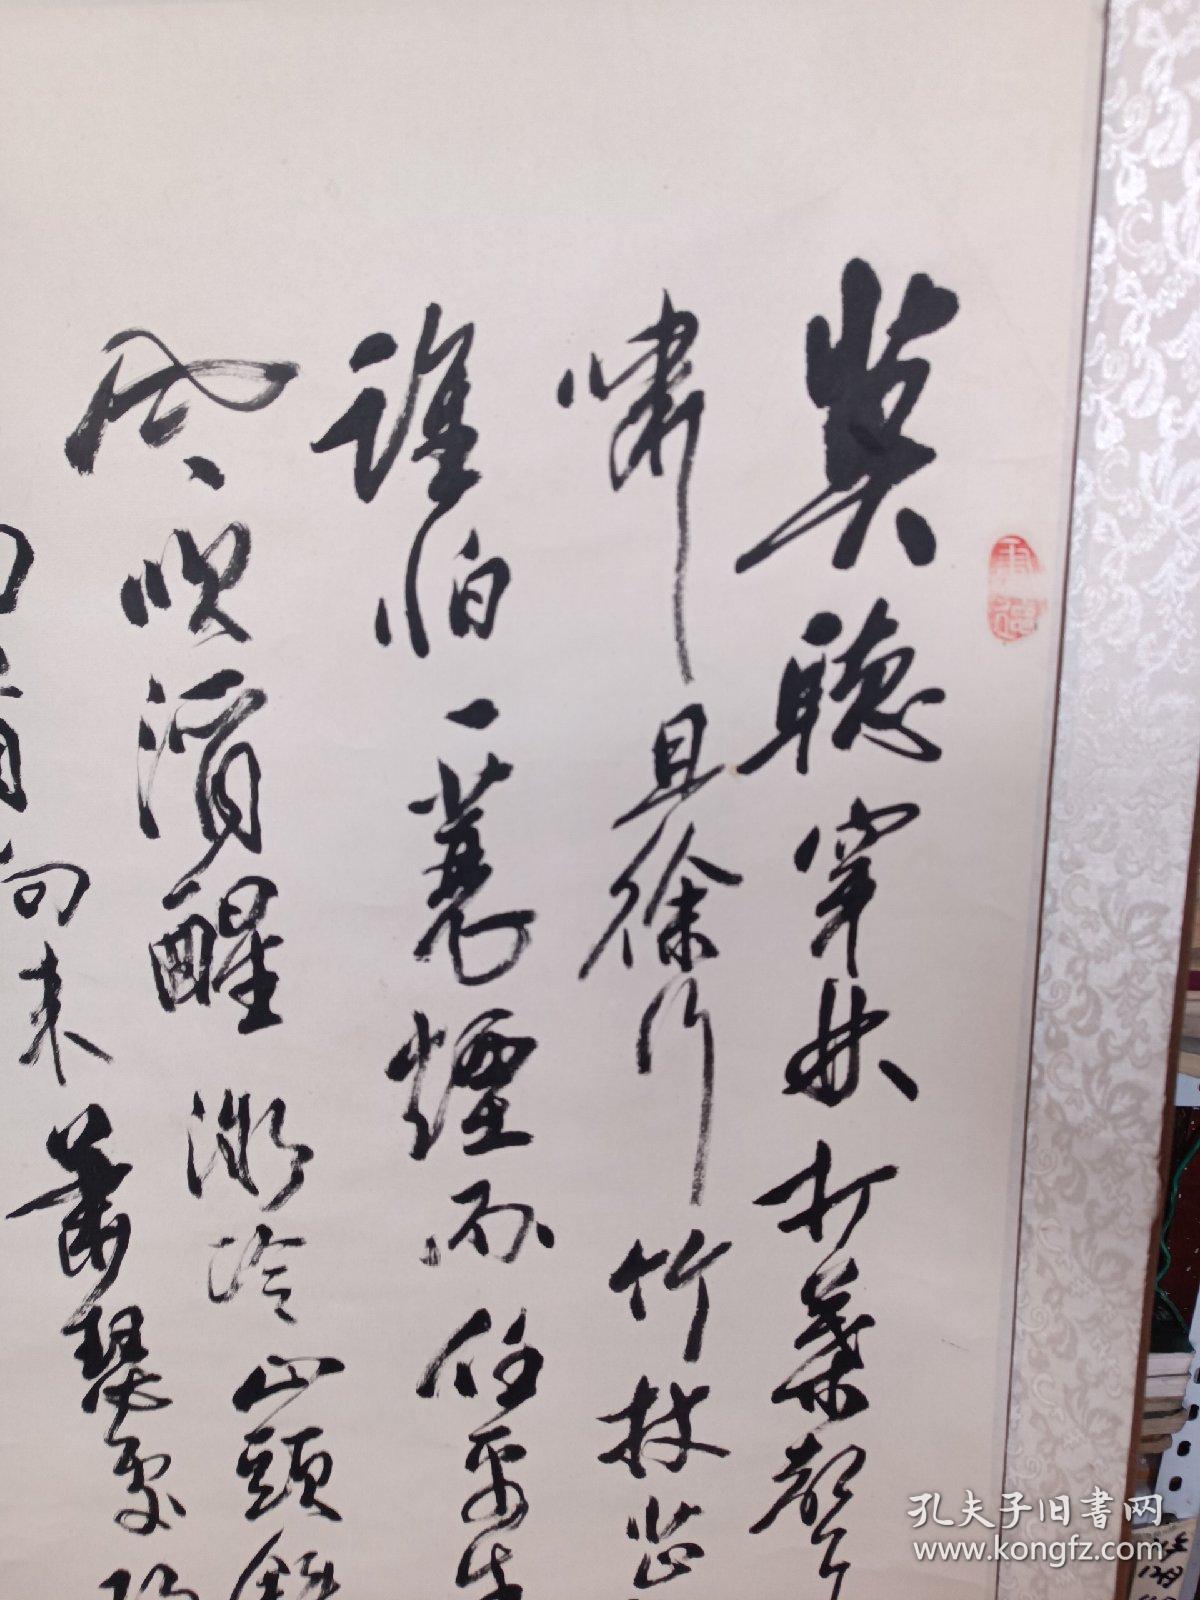 莫聴穿林打葉聲
嘯且徐行竹杖芒
誰怕一蓑煙雨任平生
風吹酒醒微冷山頭斜
向来蕭瑟處
孔夫子旧书网
www.kongfz.com